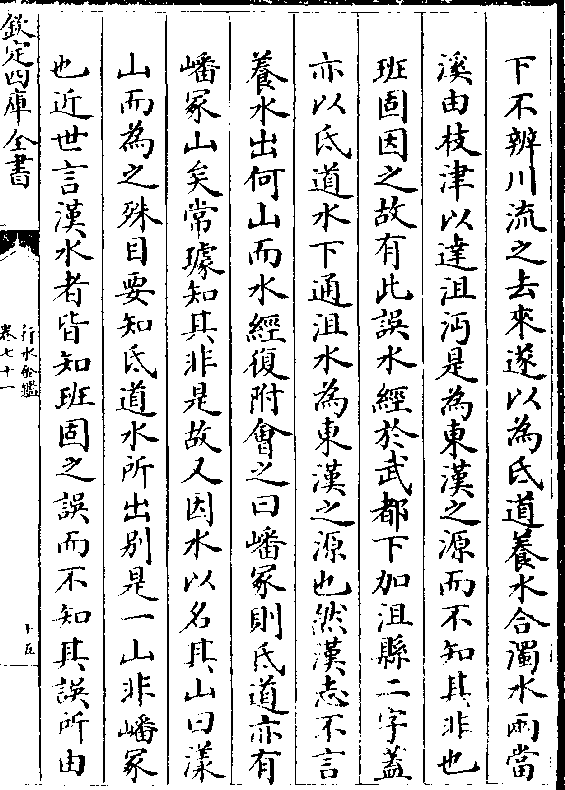 下不辨川流之去來遂以為氐道養水合濁水兩當
溪由枝津以達沮沔是為東漢之源而不知其非也
班固因之故有此誤水經於武都下加沮縣二字蓋
亦以氐道水下通沮水為東漢之源也然漢志不言
養水出何山而水經復附會之曰嶓冢則氐道亦有
嶓冢山矣常璩知其非是故又因水以名其山曰漾
山而為之殊目要知氐道水所出別是一山非嶓冢
也近世言漢水者皆知班固之誤而不知其誤所由
欽定四庫全書
行水金鑑
卷七十一
十五